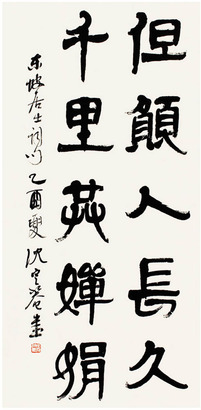 但願人長久
千里共嬋娟
東坡居士詞句 乙酉夏 沈定菴書